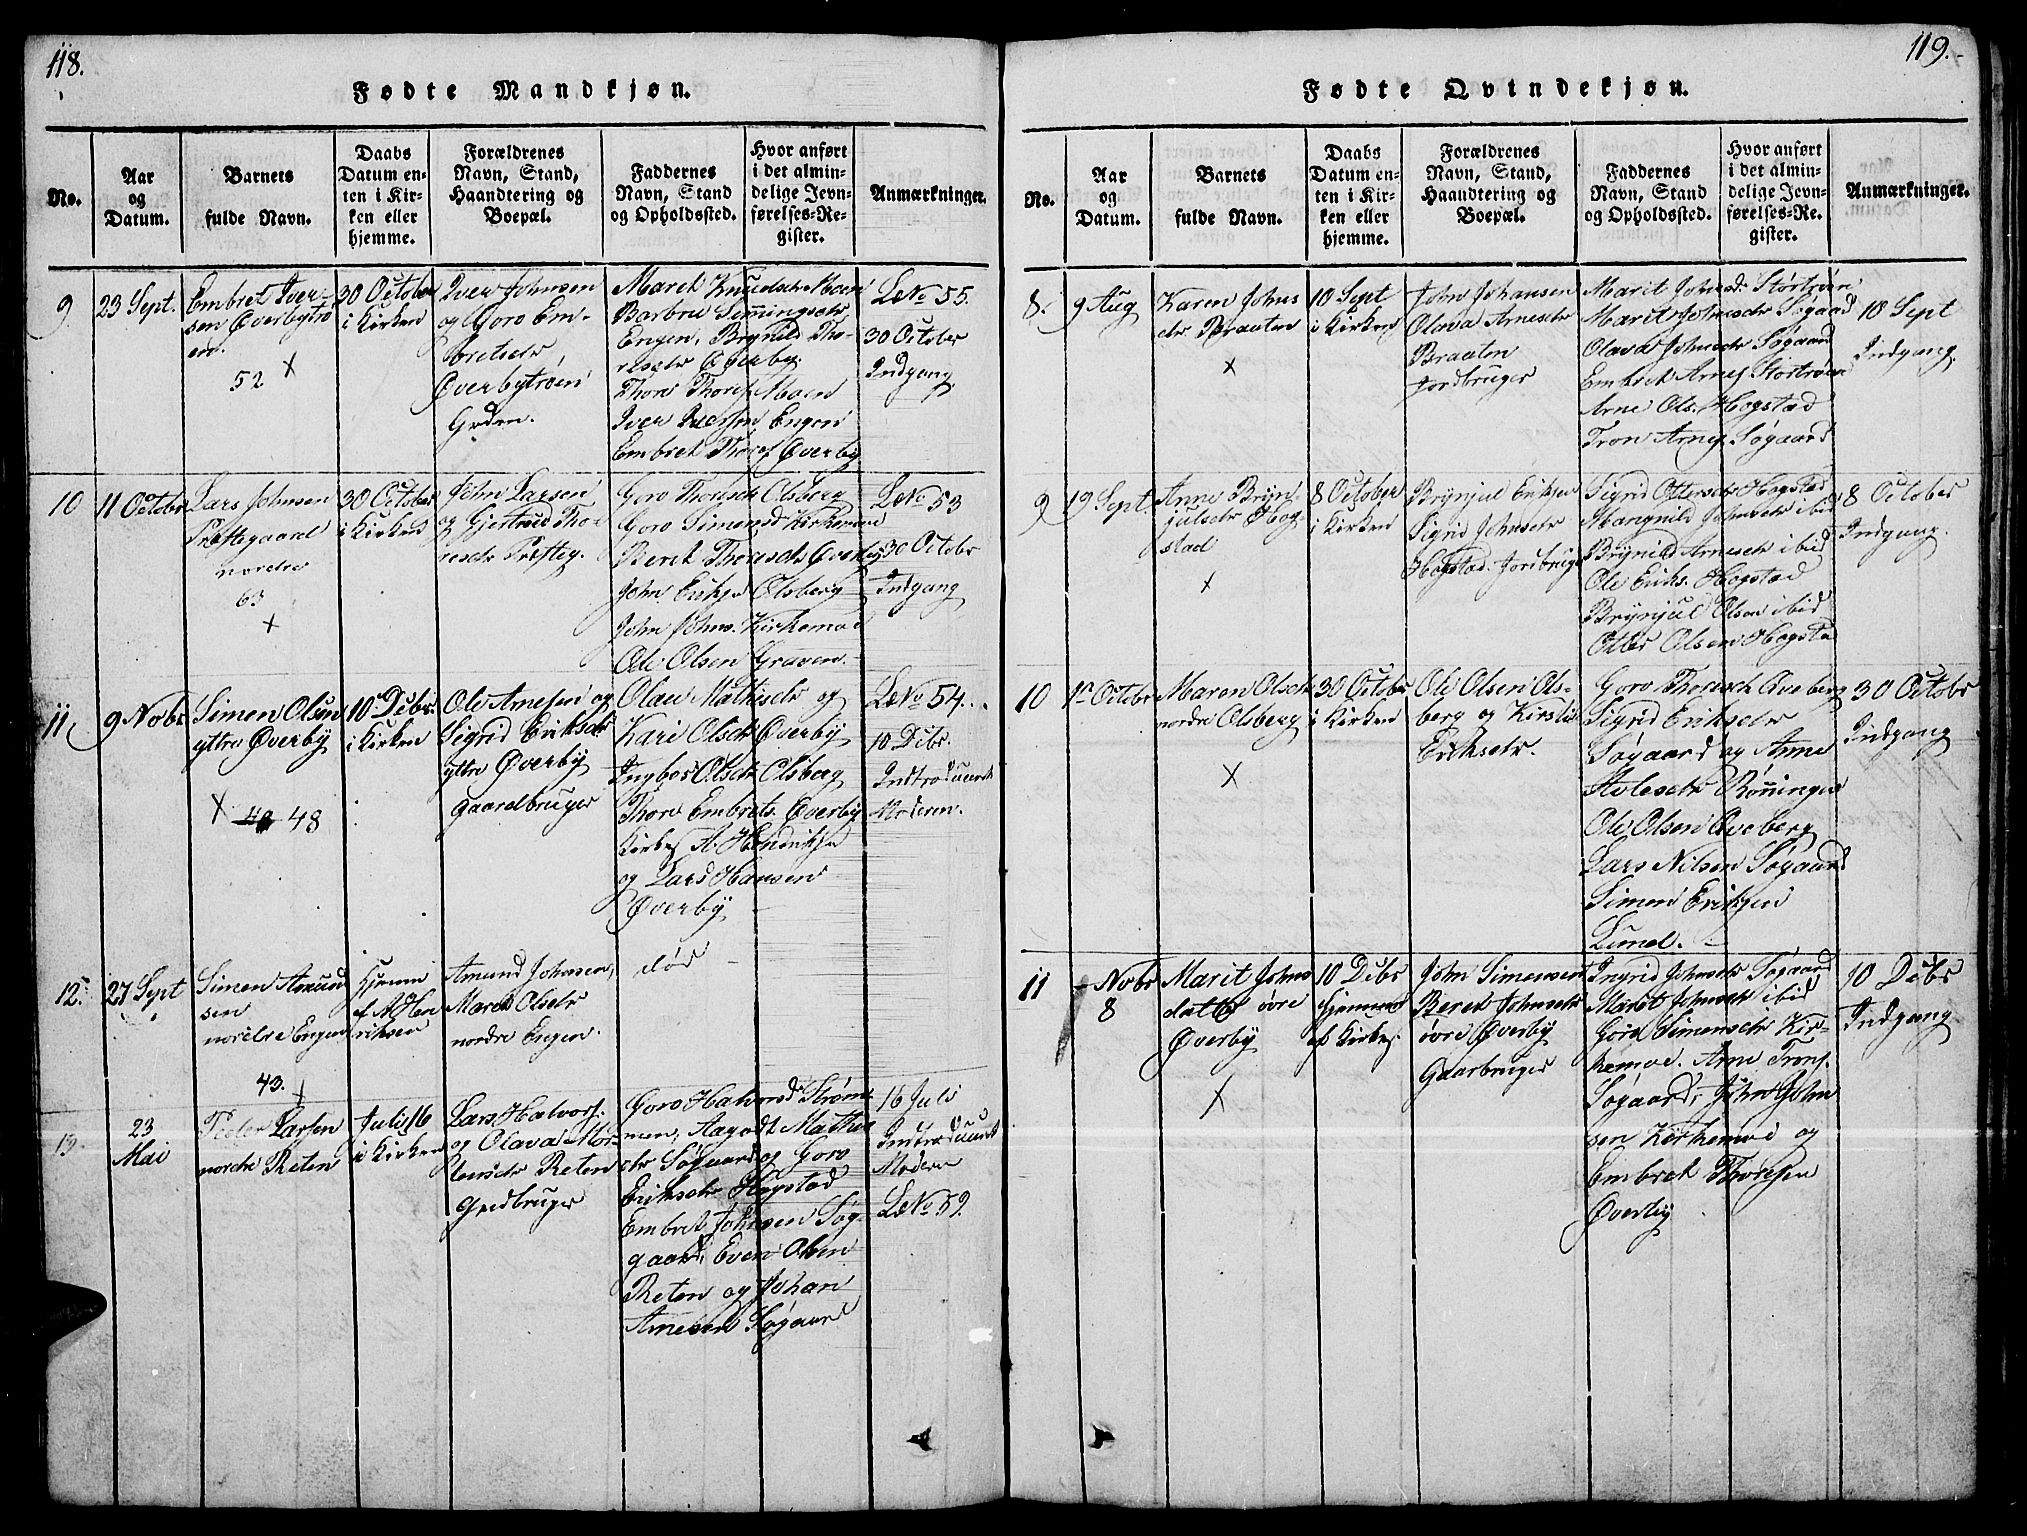 118.
Fødte Mandkjøn.
No.
Aar
og
Datum.
Barnets
fulde Navn.
Daabs
Datum en-
ten i Kir-
ken eller
hjemme.
Forældrenes
Navn, Stand,
Haandtering og
Boepæl.
Faddernes
Navn, Stand
og Opholdssted.
Hvor anført
i det almin-
delige Jevn-
førelses-Re-
gister.
Anmærkninger.
9
23 Sept.
Embret Iver-
sen Øverbytrø
en.
52 x
30 October
i Kirken
Iver Johnsen
og Goro Em-
bretsdtr
Øverbytrøen
Marit Knudsdtr Moen
Barbro Simmingsdtr
Engen, Brynild Tho-
resdtr Øverby.
Thore Thores. Moen
Iver Iversen Engen
Embret Thores. Øverby
LNo 55.
30 October
Indgang
10
11 October
Lars Johnsen
Præstegaard
nordre
63
x
30 October
i Kirken
John Larsen
og Gjertrud Tho-
resdtr Præsteg.
Goro Thoresdtr Olsberg
Goro Simonsd. Kirkemoen
Beret Thoresdtr Øverby
John Eriksen Olsberg
John Johns. Kirkemoe
Ole Olsen Graven.
LNo 53
30 Octobr
Indgang
11
9 Nobr
Simen Olsen
yttre Øverby
x 48
10 Debr.
i Kirken
Ole Arnesen og
Sigrid Eriksdtr
yttre Øverby
Gaardbruger
Olau Mathisdtr og
Kari Olsdtr Øverby
Ingbor Olsdtr Olsberg
Thore Embrets. Øverby
Kirkes. A. Hendriksen
og Lars Hansen
Øverby
LNo 54.
10 Debr.
Introduceret
Moderen.
12.
27 Sept
Simen Amund
sen
nordre Engen
43.
Hjemme
af A. Hen
riksen
Amund Johnsen,
Maret Olsdtr
nordre Engen.
død
13.
23
Mai
Peder Larsen
nordre Reten
Juli 16
i Kirken
Lars Halvors.
og Olava Mor-
tensdtr Reten
Gaardbruger
Goro Halvorsd. Strøm-
men, Aagodt Mathis
dtr Søgaard og Goro
Eriksdtr Hogstad
Embret Johnsen Søg-
gaard, Even Olsen
Reten og Johan
Arnesen Søgaard
16 Juli
Introduceret
Moderen
LNo 59.
119.
Fødte Qvindekjøn.
No.
Aar
og
Datum.
Barnets
fulde Navn.
Daabs
Datum en-
ten i Kir-
ken eller
hjemme.
Forældrenes
Navn, Stand,
Haandtering og
Boepæl.
Faddernes
Navn, Stand
og Opholdssted.
Hvor anført
i det almin-
delige Jevn-
førelses-Re-
gister.
Anmærkninger.
8.
9 Aug
Karen Johns
dtr Braaten
x
10 Sept
i Kirken
John Johansen
Olava Arnesdtr
Braaten
Jordbruger
Marit Johnsd. Stortrøen
Marit Johnsdtr Søgaard
Olava Johnsdtr Søgaard
Embret Arnes. Stortrøen
Arne Ols. Hogstad
Tron Arnes. Søgaard
10 Sept
Indgang.
9
19 Sept
Anne Bryn-
julsdtr Hog-
stad
x
8 October
i Kirken
Brynjul Eriksen
Sigrid Johnsdtr
Hogstad. Jordbruger
Sigrid Ottersdtr Hogstad
Mangnild Johnsdtr ibid
Brynild Arnesdtr ibid
Ole Eriks. Hogstad
Brynjul Olsen ibid
Otter Olsen Hogstad
8 October
Indgang.
10
1e Octobr
Maren Olsdtr
nordre Olsberg
x
30 October
i Kirken
Ole Olsen Ols-
berg og Kirsti
Eriksdtr.
Goro Thoresdtr Aveberg
Sigrid Eriksdtr
Søgaard og Anne
Atlesdtr Rønningen
Ole Olsen Aveberg
Lars Nilsen Søgaard
Simen Eriksen
Lund.
30 Octobr
Indgang
11
Nobr
8
Marit Johns
datter øvre
Øverby
x
10 Debr
Hjemme
af Kirkes.
John Simensen
Beret Johnsdtr
øvre Øverby
Gaarbruger
Ingrid Johnsdtr Søgaard
Marit Johnsdtr ibid
Goro Simensdtr Kir-
kemoe. Arne Trons.
Søgaard, John John
sen Kirkemoe og
Embret Thoresen
Øverby
10 Debr
Indgang